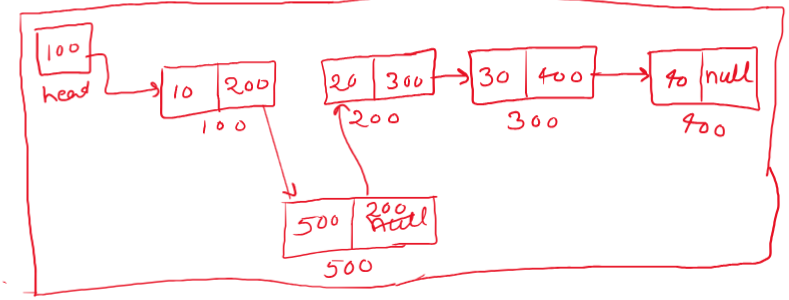 100
head
10 200
100
20 300
200
30 400
300
40 null
400
500 200 null
500